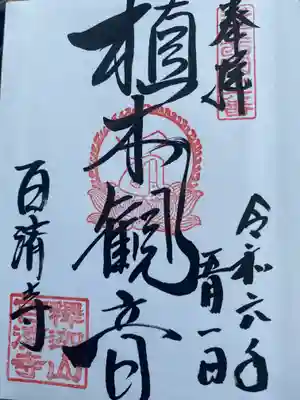 奉拝
令和六年
五月一日
植木観音
百済寺
釋迦山
百済寺